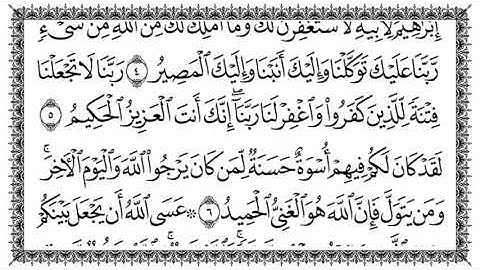 إِبْرَٰهِيمَ لِأَبِيهِ لَأَسْتَغْفِرَنَّ لَكَ وَمَآ أَمْلِكُ لَكَ مِنَ ٱللَّهِ مِن شَىْءٍ
رَّبَّنَا عَلَيْكَ تَوَكَّلْنَا وَإِلَيْكَ أَنَبْنَا وَإِلَيْكَ ٱلْمَصِيرُ ٤ رَبَّنَا لَا تَجْعَلْنَا
فِتْنَةً لِّلَّذِينَ كَفَرُوا۟ وَٱغْفِرْ لَنَا رَبَّنَآ ۖ إِنَّكَ أَنتَ ٱلْعَزِيزُ ٱلْحَكِيمُ ٥
لَقَدْ كَانَ لَكُمْ فِيهِمْ أُسْوَةٌ حَسَنَةٌ لِّمَن كَانَ يَرْجُوا۟ ٱللَّهَ وَٱلْيَوْمَ ٱلْءَاخِرَ ۚ
وَمَن يَتَوَلَّ فَإِنَّ ٱللَّهَ هُوَ ٱلْغَنِىُّ ٱلْحَمِيدُ ٦ ۞ عَسَى ٱللَّهُ أَن يَجْعَلَ بَيْنَكُمْ